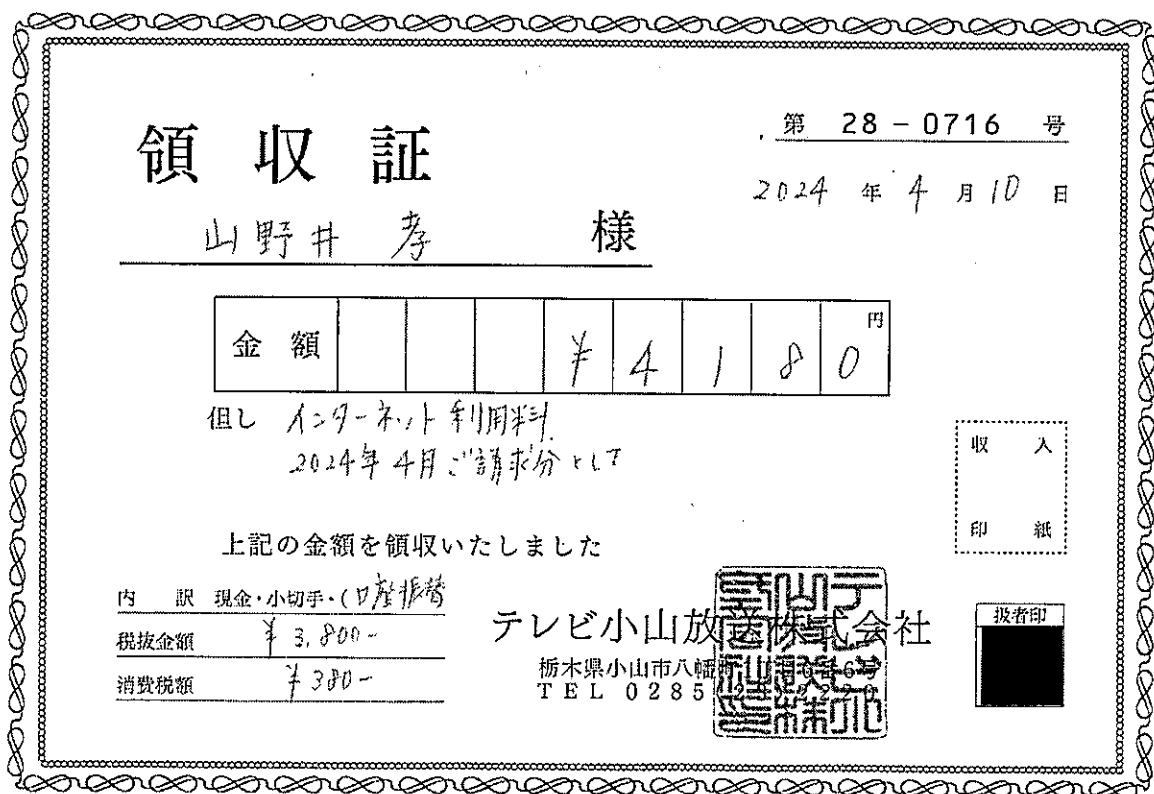 領収証
第 28-0716 号
2024 年 4 月 10 日
山野井 孝 様
金額 ¥4180 円
但し インターネット利用料
2024年4月ご請求分として
収入
印紙
上記の金額を領収いたしました
内訳 現金・小切手・(口座振替
税抜金額 ¥3,800-
消費税額 ¥380-
テレビ小山放送株式会社
栃木県小山市八幡
TEL 0285
扱者印